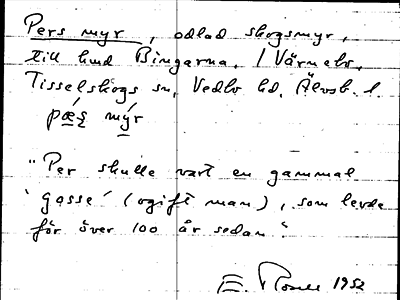 Pers myr, odlad skogsmyr,
till hmd Bingarna, / Värnebo,
Tisselskogs sn, Vedbo hd, Älvsb. l.
pæș mýr
"Per skulle vart en gammal
'gosse' (ogift man), som levde
för över 100 år sedan."
E. 1952